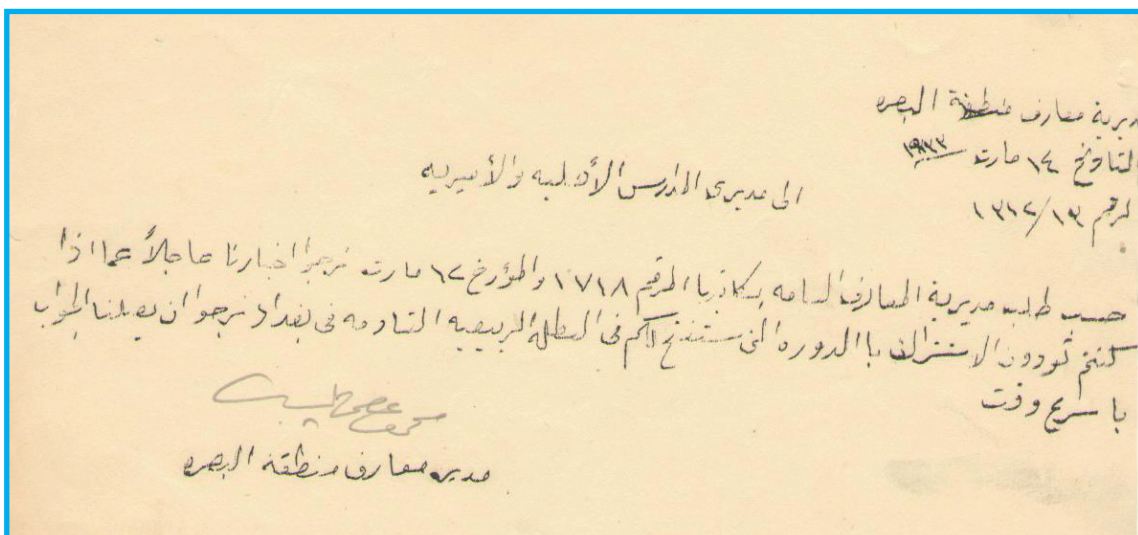 مديرية معارف منطقة البصره
التاريخ ١٤ مارت ١٩٣٣
الرقم ١٣١٢/١٣
الى مديرى المدارس الأهليه والأميريه
حسب طلب مديرية المعارف العامه بكتابها المرقم ١٧١٨ والمؤرخ ١٢ مارت نرجوا اخبارنا عاجلاً عما اذا
كنتم تودون الاشتراك با الدوره التى ستفتح لكم فى العطله الربيعيه القادمه فى بغداد نرجوا ان يصلنا الجواب
با سريع وقت
مدير معارف منطقة البصره